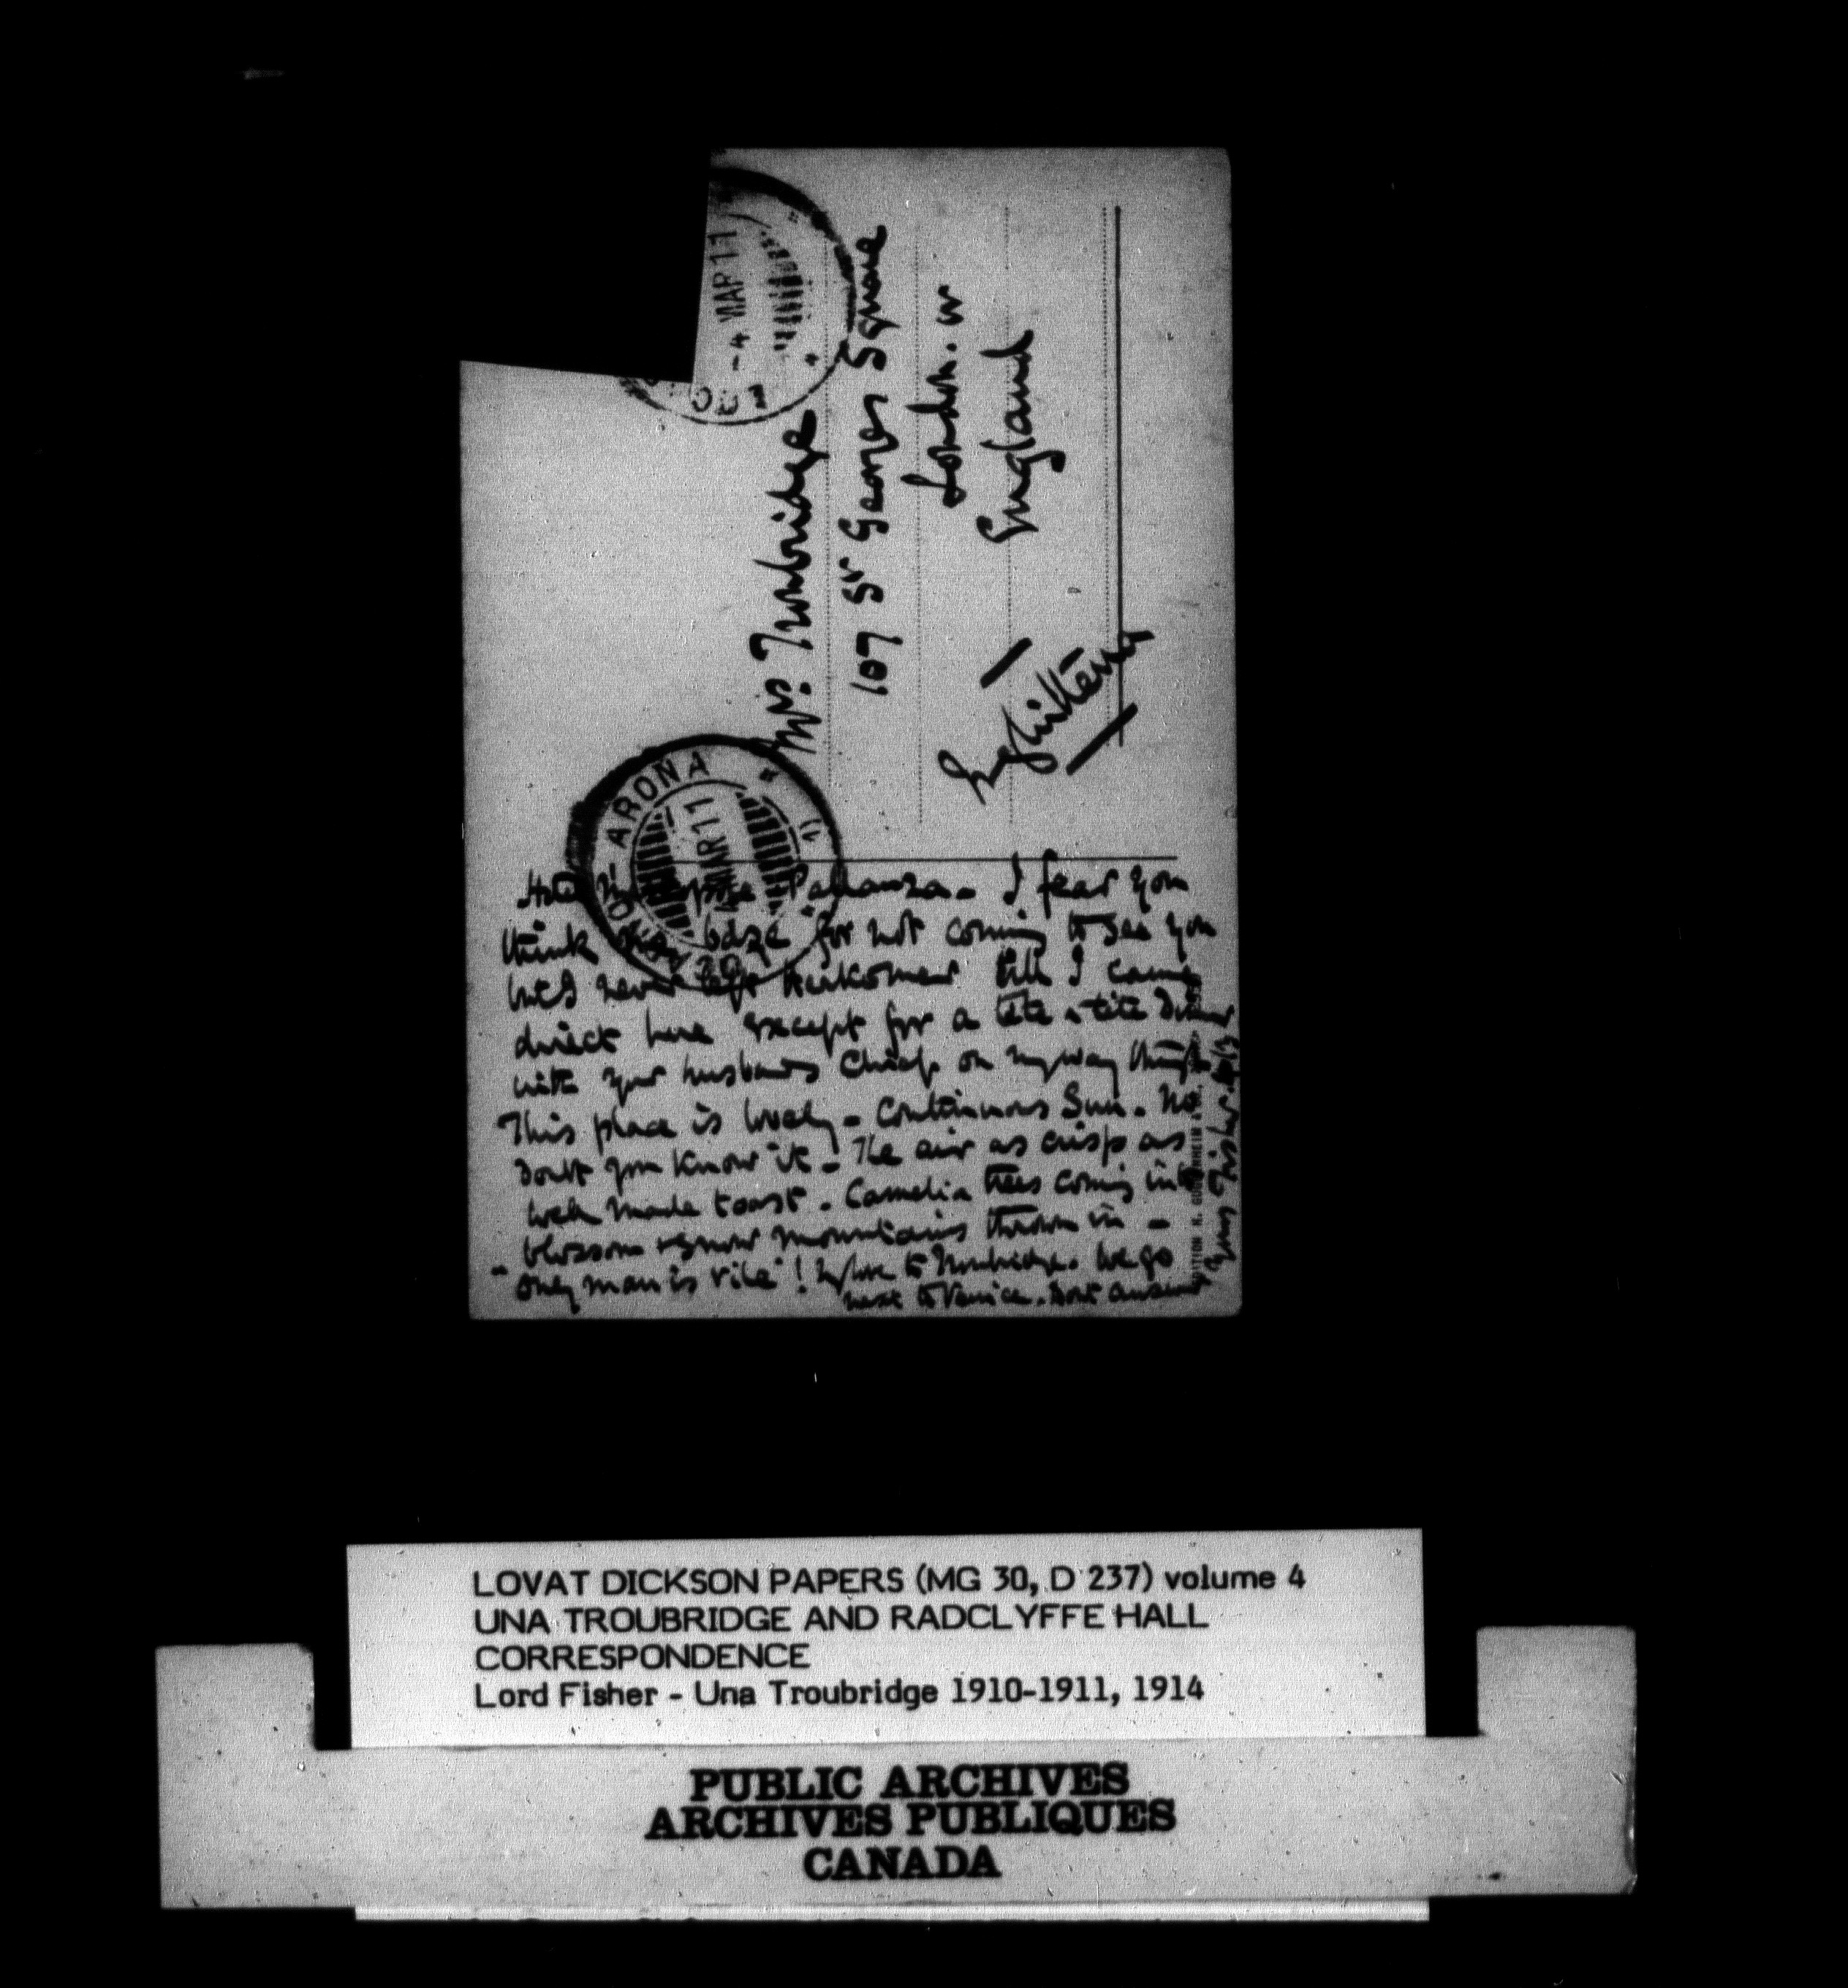 Mrs. Troubridge
107 St Georges Square
London. W
England
Inghilterra
-4 MAR 11
ARONA
MAR 11
Pallanza - I fear you
think me base for not coming to see you
but I never left till I came
direct here except for a tete a tete
with your husbands Chief on my way
This place is lovely - Continuous Sun. No
doubt you know it - The air as crisp as
well made toast. Camelia trees coming into
blossom & snow mountains thrown in -
"only man is vile"! My love to Troubridge. We go
next to Venice. Dont answer
Yours Fisher
LOVAT DICKSON PAPERS (MG 30, D 237) volume 4
UNA TROUBRIDGE AND RADCLYFFE HALL
CORRESPONDENCE
Lord Fisher - Una Troubridge 1910-1911, 1914
PUBLIC ARCHIVES
ARCHIVES PUBLIQUES
CANADA